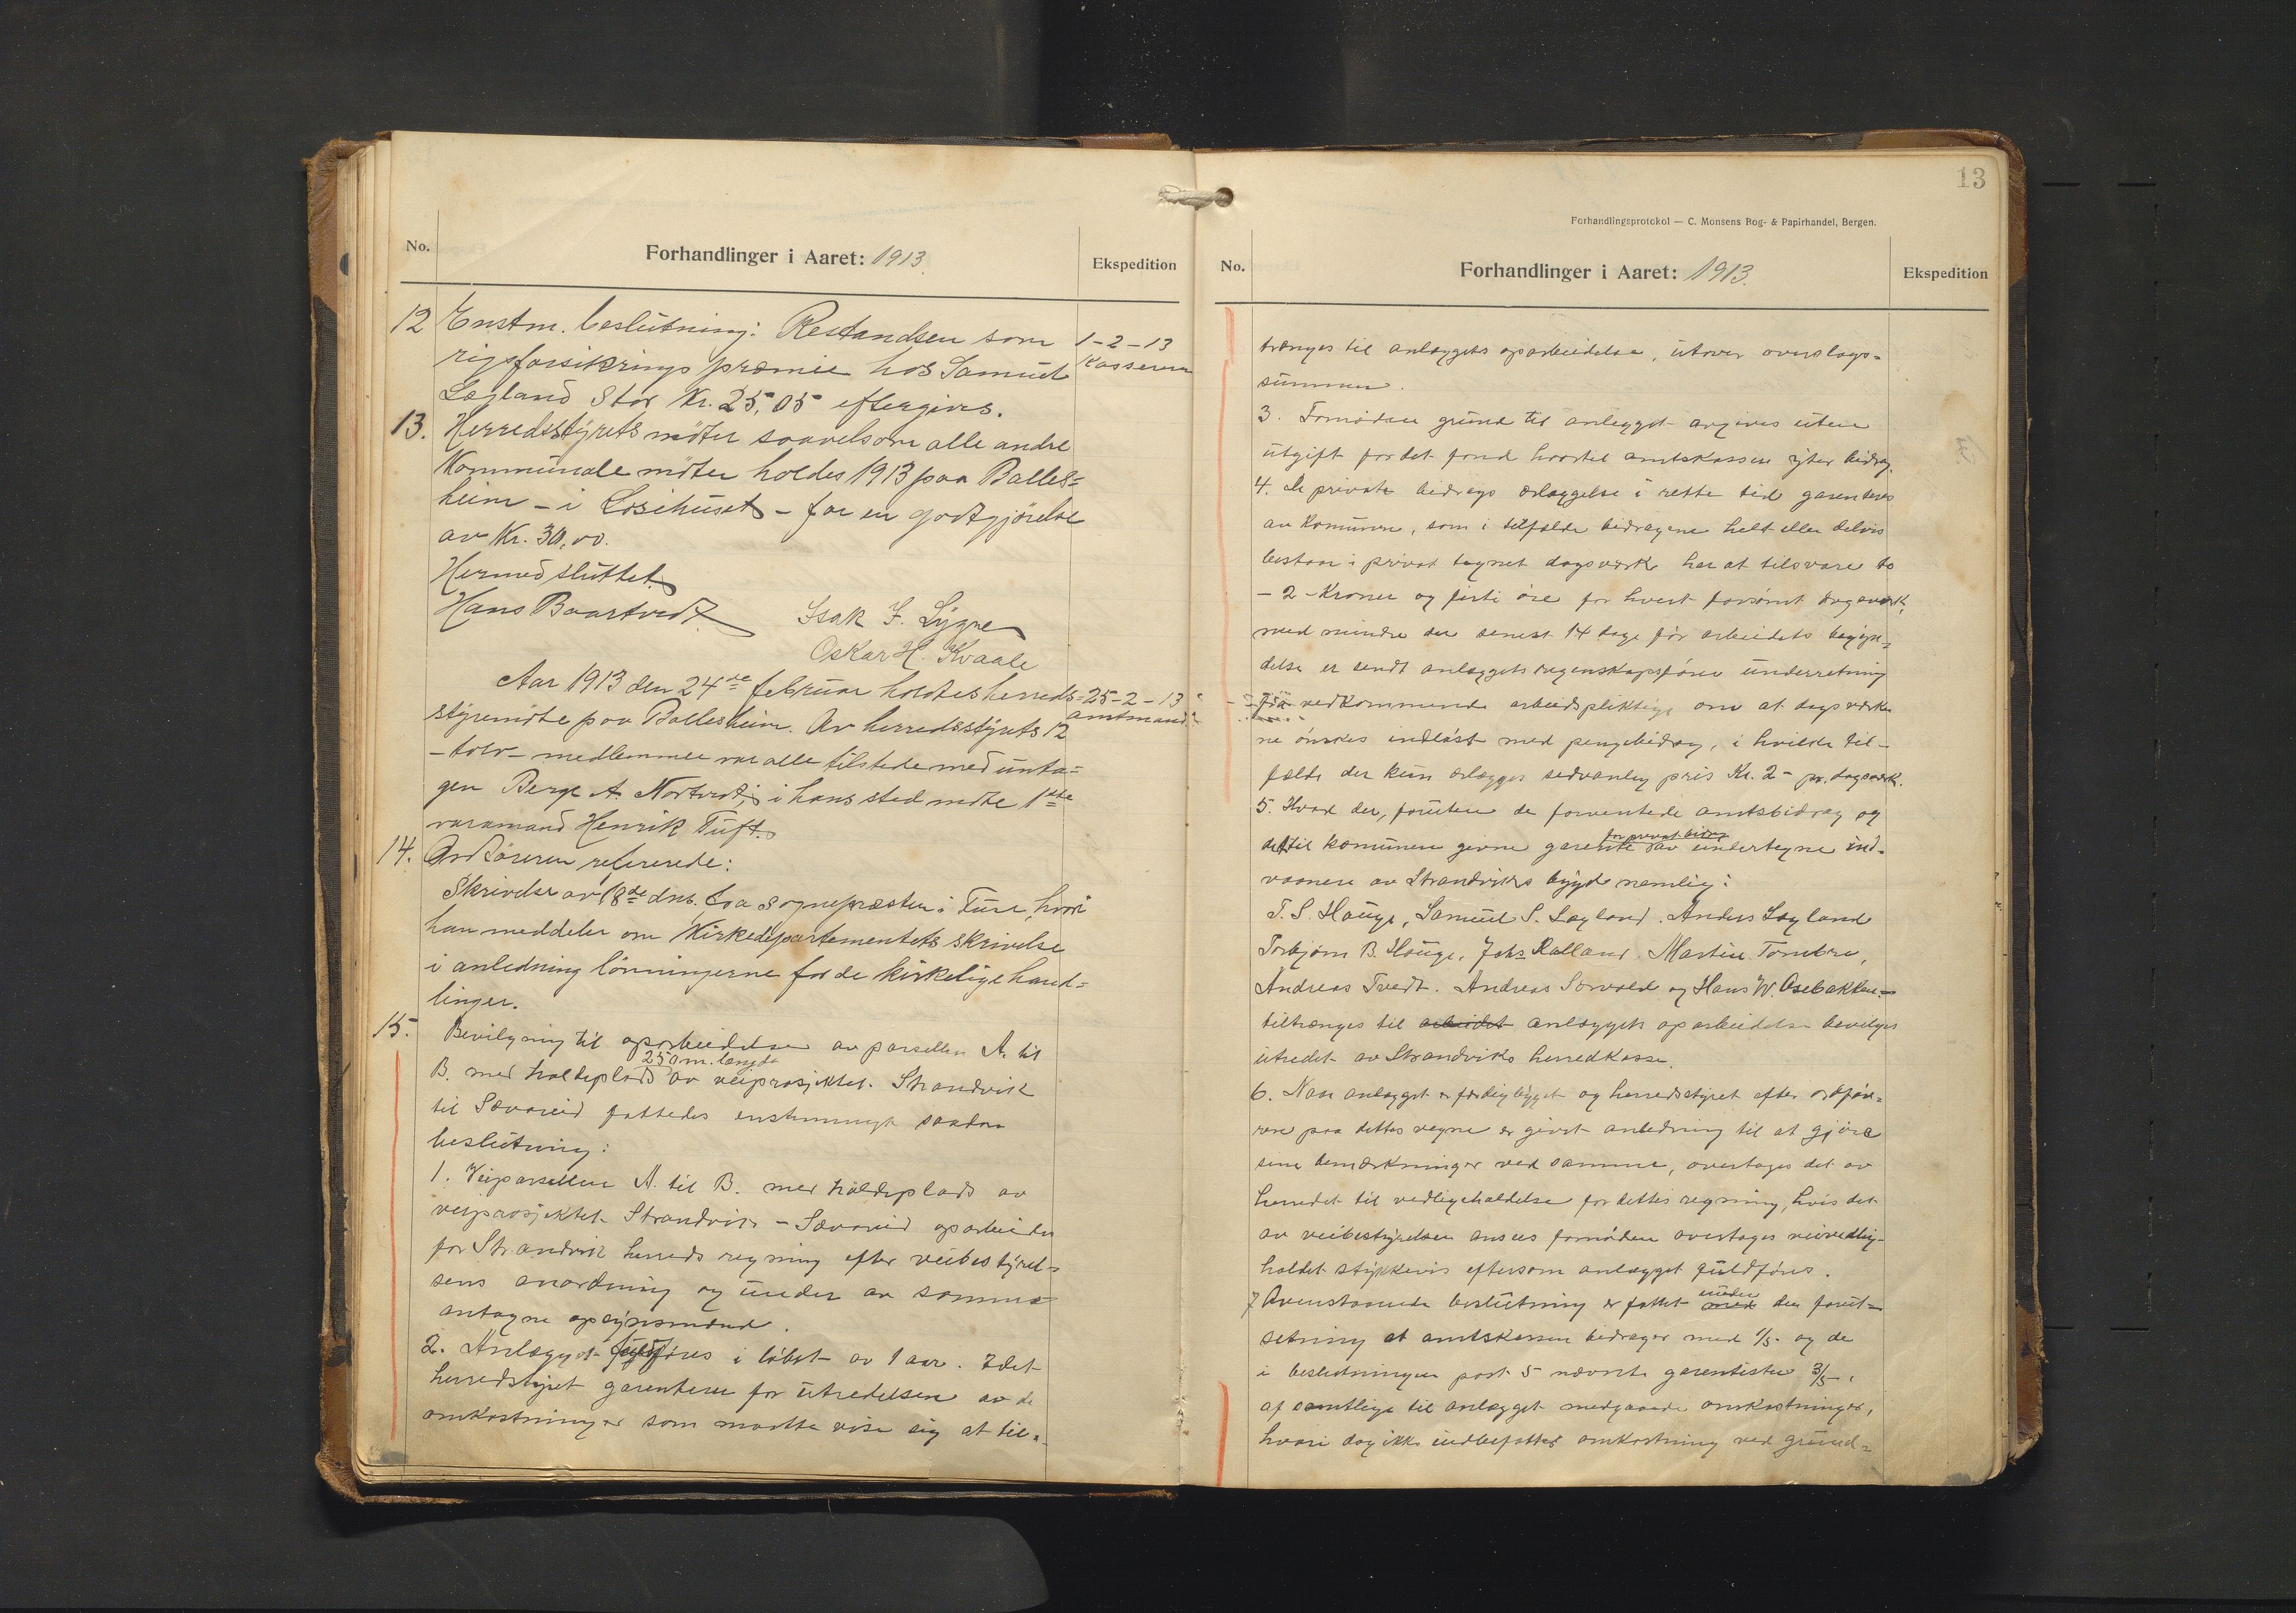 No.
Forhandlinger i Aaret: 1913.
Ekspedition
12 Enstm. beslutning: Restandsen som 1-2-13
rigsforsikringspræmie hos Samuel Kasseren
Lægland Stor Kr. 25,05 eftergives.
13. Herredsstyrets møter saavelsom alle andre
Kommunale møter holdes 1913 paa Balles=
heim - i Losjhuset - for en godtgjörelse
av Kr. 30,00.
Hermed sluttet.
Hans Baartvedt Isak J. Lygre
Oskar H. Kvaale
Aar 1913 den 24de februar holdtes herreds= 25-2-13
styremöte paa Ballesheim. Av herredsstyrets 12 amtmand
-tolv- medlemmer var alle tilstede med unta=
gen Berge A. Nortvedt; i hans sted mötte 1ste
varamand Henrik Tuft.
14. Ordföreren refererede:
Skrivelse av 18de dns. fra sognepræsten i Fuse, hvori
han meddeler om Kirkedepartementets skrivelse
i anledning lönningerne for de kirkelige hand=
linger.
15. Bevilgning til oparbeidelse av parsellen A. til
250 m. længde
B. med holdeplads av veiprosjektet. Strandvik
til Sævareid fattedes enstemmigt saadan
beslutning:
1. Veiparsellen A. til B. med holdeplads av
veiprosjektet Strandvik - Sævareid oparbeides
for Strandvik herreds regning efter veibestyrel=
sens anordning og under av samme
antagne opsynsmænd.
2. Anlægget fuldføres i löbet av 1 aar. Idet
herredstyret garenterer for utredelsen av de
omkostninger som maatte vise sig at til=
13
Forhandlingsprotokol — C. Monsens Bog- & Papirhandel, Bergen.
No.
Forhandlinger i Aaret: 1913.
Ekspedition
trænges til anlæggets oparbeidelse, utover overslags=
summen.
3. Fornöden grund til anlægget avgives uten
utgift for det fond hvortil amtskassen yter bidrag.
4. De private bidrags erlæggelse i rette tid garenteres
av Komunen, som i tilfælde bidragene helt eller delvis
bestaar i privat tegnet dagsverk har at tilsvare to
- 2 - Kroner og firti öre for hvert forsömt dagsverk,
med mindre der senest 14 dage för arbeidets begyn=
delse er sendt anlæggets regenskapsförer underretning
fra vedkommende arbeidspliktige om at dagsverke
ne önskes indlöst med pengebidrag, i hvilke til-
fælde der kun erlægges sedvanlig pris Kr. 2- pr. dagsverk.
5. Hvad der, foruten de forventede amtsbidrag og
for privat bidrag
det til komunen givne garenti av undertegne ind-
vaanere av Strandviks bygd nemlig:
T. S. Hauge, Samuel S. Lægland. Anders Lægland
Torbjørn B. Hauge, Johs Røtland. Martin Tombre,
Andreas Tvedt. Andreas Sorvald og Hans W. Osebakken-
tiltrænges til arbeidet anlæggets oparbeidelse bevilges
utredet av Strandviks herredkasse.
6. Naar anlægget er færdigbygget og herredsstyret efter ordföre=
ren paa dettes vegne er givet anledning til at gjöre
sine bemerkninger ved samme, overtages det av
herredet til vedligeholdelse for dettes regning, hvis det
av veibestyrelsen ansees fornöden overtages veivedlig-
holdet stykkevis eftersom anlægget fuldföres.
under
7 Ovenstaaende beslutning er fattet med den forut-
setning at amtskassen bidrager med 1/5 og de
i beslutningen post 5 nævnte garentister 3/5,
af samtlige til anlægget medgaaende omkostninger,
hvori dog ikke indbefattes omkostning ved grund=